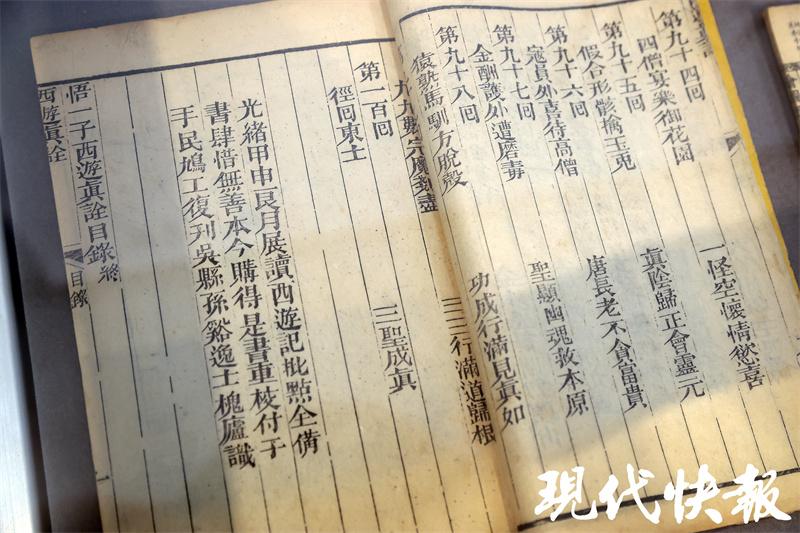 第九十四回
四僧宴樂御花園　一怪空懷情慾喜
第九十五回
假合形骸擒玉兎　眞陰歸正會靈元
第九十六回
寇員外喜待高僧　唐長老不貪富貴
第九十七回
金酬護外遭磨毒　聖顯幽魂救本原
第九十八回
猿熟馬馴方脫殼　功成行滿見眞如
九九數完魔剗盡　三三行滿道歸根
第一百回
徑回東土　三聖成眞
光緒甲申艮月展讀西遊記批點全備
書肆惜無善本今購得是書重校付于
手民鳩工復刊吳縣孫谿逸士槐廬識
悟一子西遊眞詮目錄終
西遊眞詮　目錄
現代快報